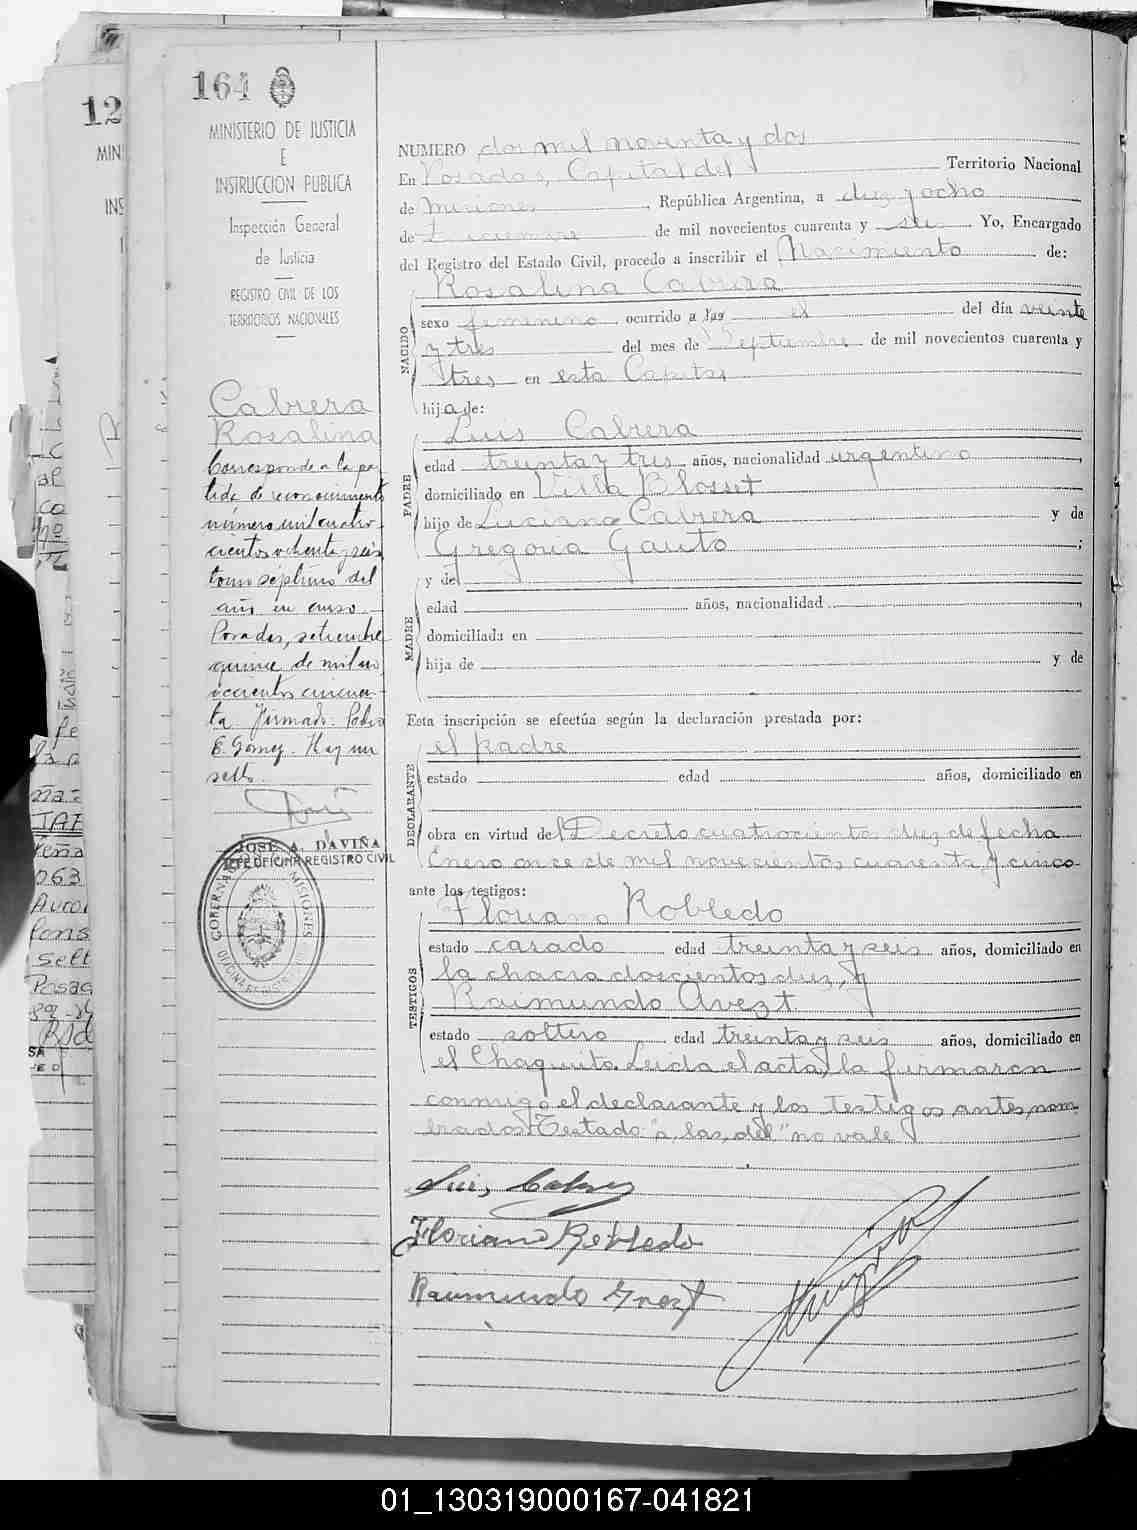 164
MINISTERIO DE JUSTICIA
E
INSTRUCCION PUBLICA
Inspección General
de Justicia
REGISTRO CIVIL DE LOS
TERRITORIOS NACIONALES
Cabrera
Rosalina
Corresponde a la par-
tida de reconocimiento
número mil cuatro-
cientos ochenta y seis
tomo séptimo del
año en curso.
Posadas, setiembre
quince de mil no-
vecientos cincuen-
ta Firmado: Pedro
E. Gomez. Hay un
sello.
JOSE A. DAVIÑA
JEFE OFICINA REGISTRO CIVIL
NUMERO dos mil noventa y dos
En Posadas, Capital del Territorio Nacional
de Misiones, República Argentina, a diez y ocho
de Diciembre de mil novecientos cuarenta y seis Yo, Encargado
del Registro del Estado Civil, procedo a inscribir el Nacimiento de:
NACIDO
Rosalina Cabrera
sexo femenino ocurrido a las el del día veinte
y tres del mes de Septiembre de mil novecientos cuarenta y
tres en esta Capital
hija de:
PADRE
Luis Cabrera
edad treinta y tres años, nacionalidad argentino
domiciliado en Villa Blosset
hijo de Luciano Cabrera y de
Gregoria Gauto ;
MADRE
y de
edad años, nacionalidad
domiciliada en
hija de y de
Esta inscripción se efectúa según la declaración prestada por:
DECLARANTE
el padre
estado edad años, domiciliado en
obra en virtud de Decreto cuatrocientos diez de fecha
Enero once de mil novecientos cuarenta y cinco
ante los testigos:
TESTIGOS
Floriano Robledo
estado casado edad treinta y seis años, domiciliado en
la chacra doscientos diez, y
Raimundo Avezt
estado soltero edad treinta y seis años, domiciliado en
el Chaquito. Leida el acta, la firmaron
conmigo el declarante y los testigos antes nom-
brados. Testado "a las, del" no vale
Luis Cabrera
Floriano Robledo
Raimundo
01_130319000167-041821